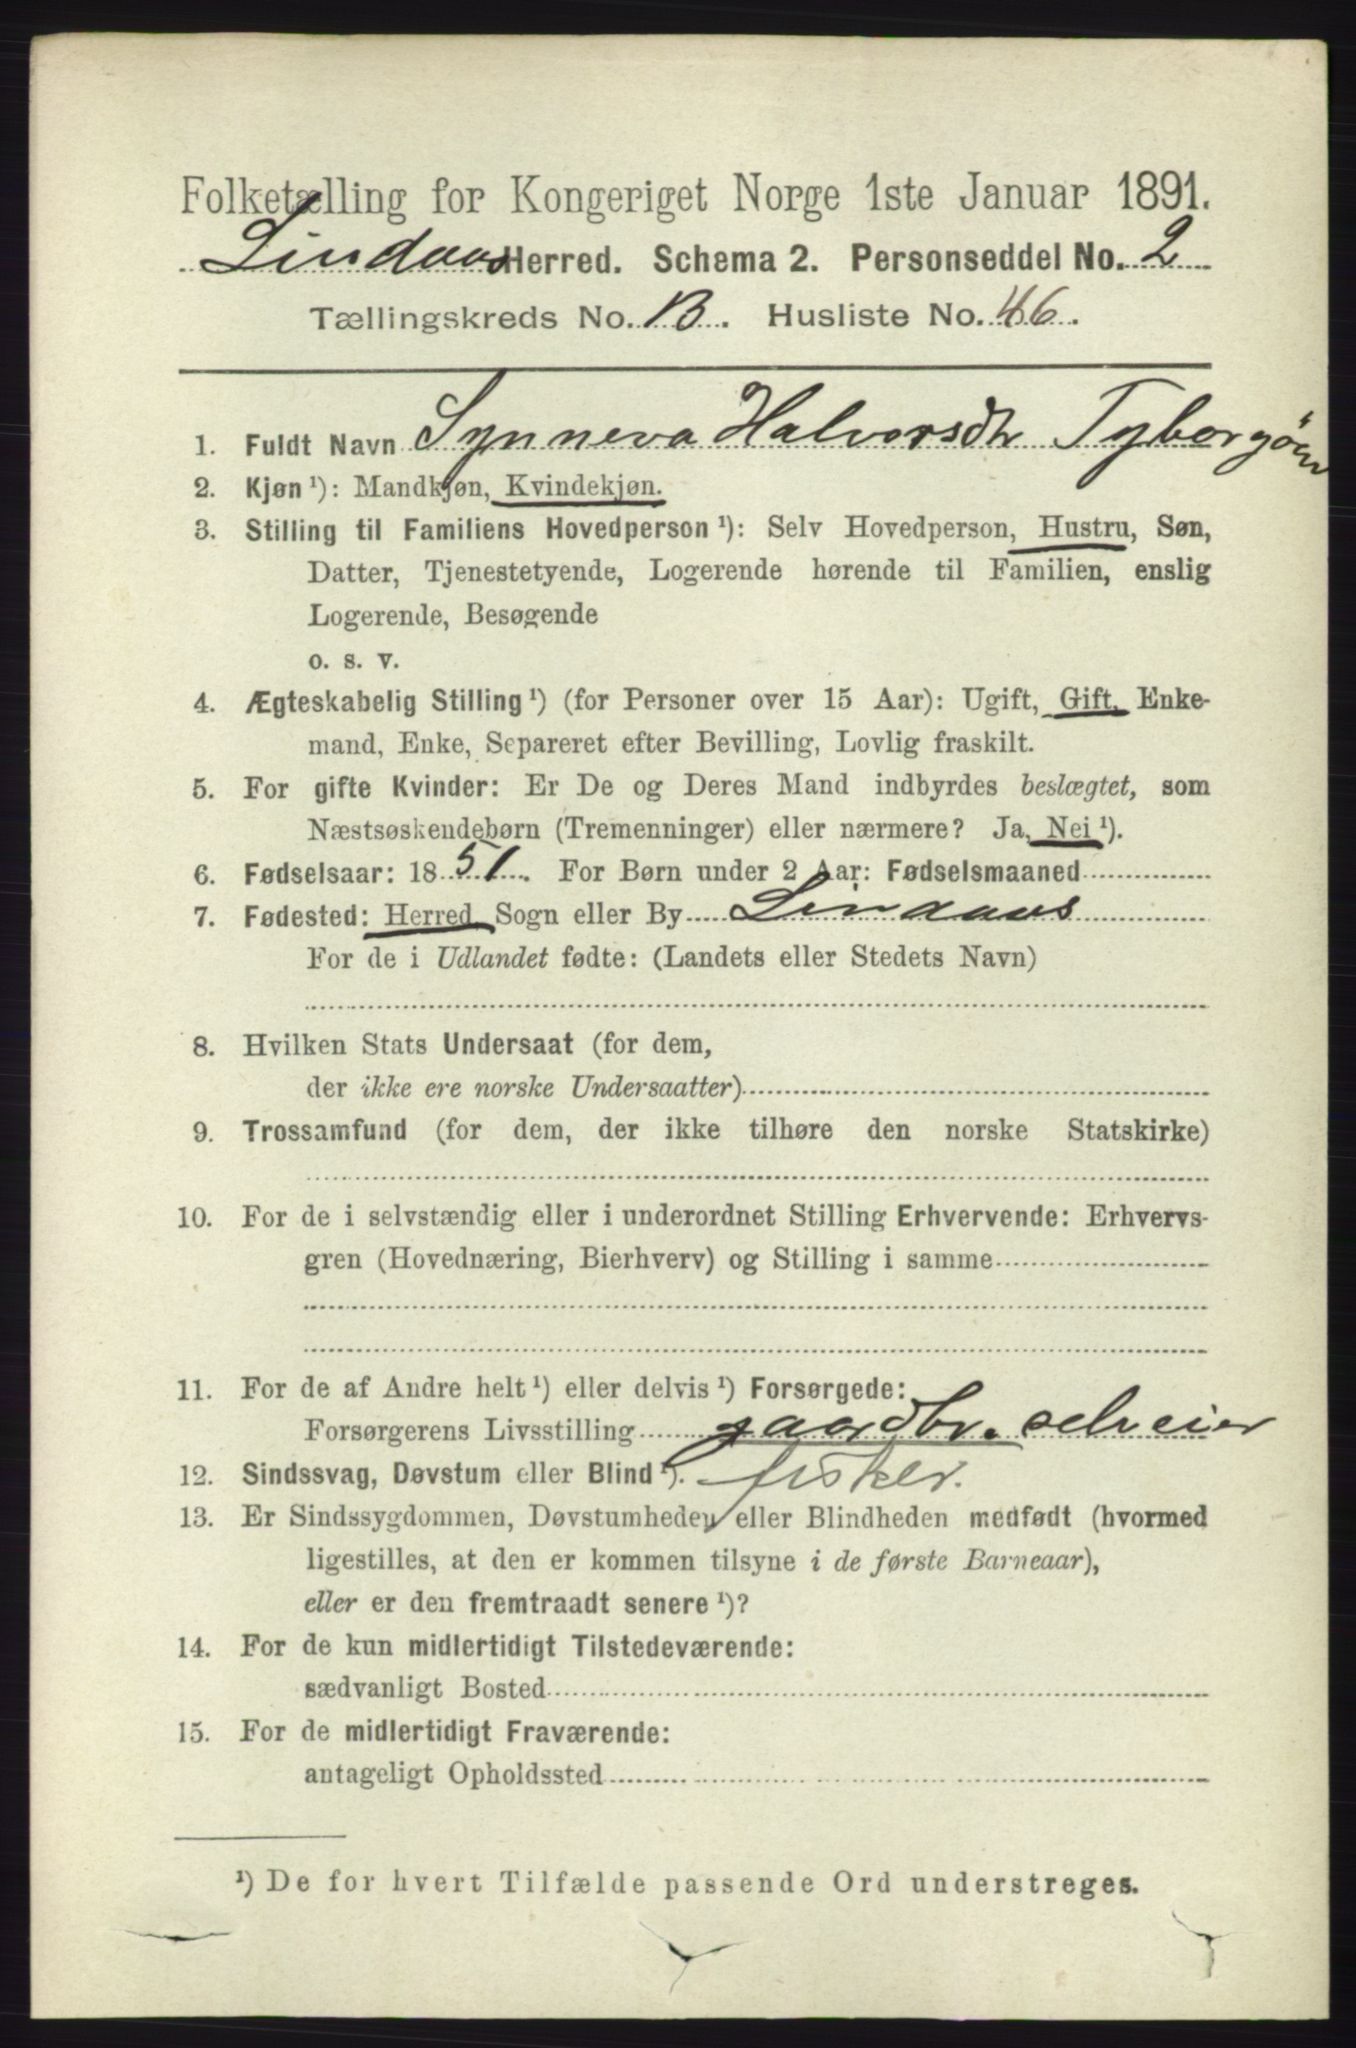 Folketælling for Kongeriget Norge 1ste Januar 1891.
Lindaas Herred. Schema 2. Personseddel No. 2
Tællingskreds No. 13. Husliste No. 46.
1. Fuldt Navn Synneva Halvorsdtr
2. Kjøn ¹): Mandkjøn, Kvindekjøn.
3. Stilling til Familiens Hovedperson ¹): Selv Hovedperson, Hustru, Søn,
Datter, Tjenestetyende, Logerende hørende til Familien, enslig
Logerende, Besøgende
o. s. v.
4. Ægteskabelig Stilling ¹) (for Personer over 15 Aar): Ugift, Gift, Enke-
mand, Enke, Separeret efter Bevilling, Lovlig fraskilt.
5. For gifte Kvinder: Er De og Deres Mand indbyrdes beslægtet, som
Næstsøskendebørn (Tremenninger) eller nærmere? Ja, Nei ¹).
6. Fødselsaar: 1851. For Børn under 2 Aar: Fødselsmaaned
7. Fødested: Herred, Sogn eller By Lindaas
For de i Udlandet fødte: (Landets eller Stedets Navn)
8. Hvilken Stats Undersaat (for dem,
der ikke ere norske Undersaatter)
9. Trossamfund (for dem, der ikke tilhøre den norske Statskirke)
10. For de i selvstændig eller i underordnet Stilling Erhvervende: Erhvervs-
gren (Hovednæring, Bierhverv) og Stilling i samme
11. For de af Andre helt ¹) eller delvis ¹) Forsørgede:
Forsørgerens Livsstilling gaardbr. selveier
12. Sindssvag, Døvstum eller Blind ¹). fisker.
13. Er Sindssygdommen, Døvstumheden eller Blindheden medfødt (hvormed
ligestilles, at den er kommen tilsyne i de første Barneaar),
eller er den fremtraadt senere ¹)?
14. For de kun midlertidigt Tilstedeværende:
sædvanligt Bosted
15. For de midlertidigt Fraværende:
antageligt Opholdssted
¹) De for hvert Tilfælde passende Ord understreges.